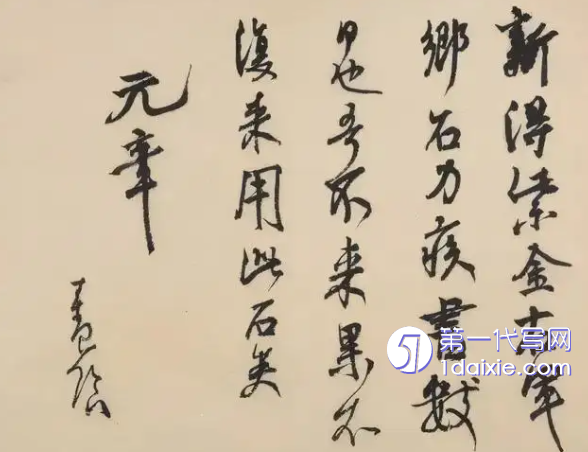 新得紫金右軍
鄉石力疾書數
日也吾不來果不
復來用此石矣
元章
第一代写网
1daixie.com